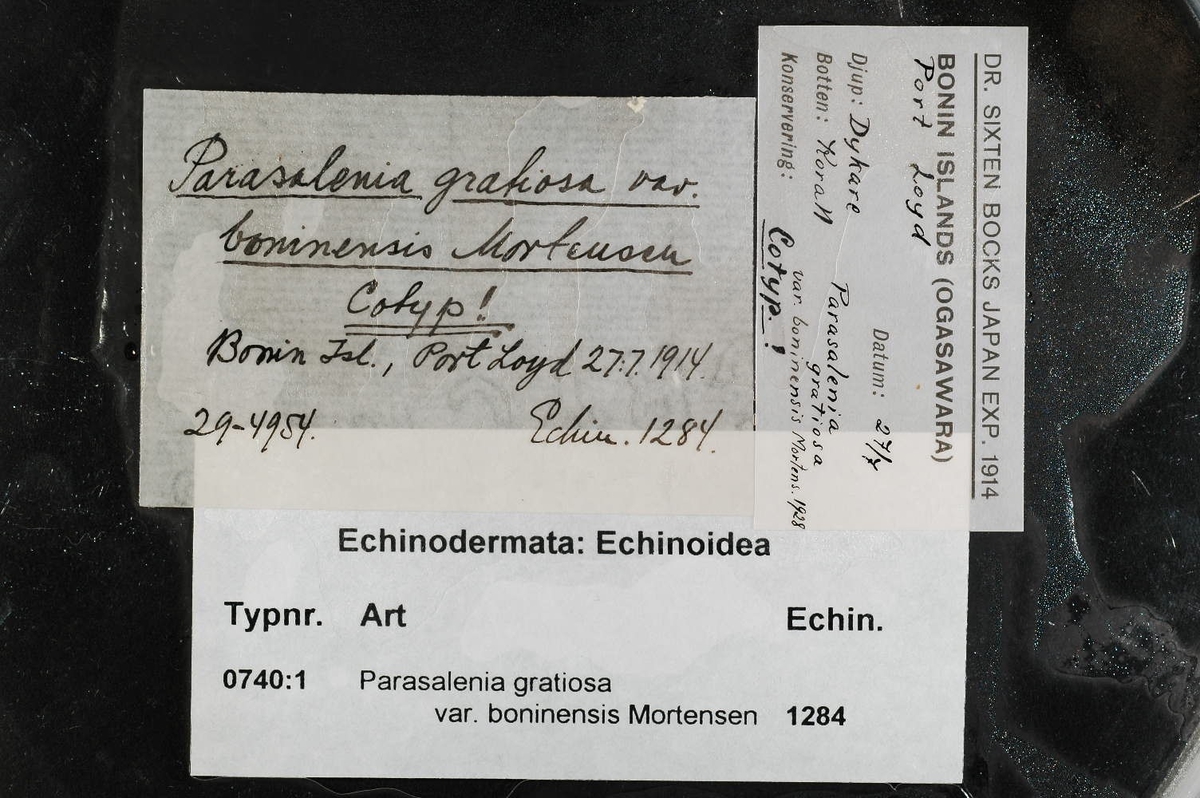 Parasalenia gratiosa var.
boninensis Mortensen
Cotyp!
Bonin Isl., Port Loyd 27.7.1914.
29-4954.
Echin. 1284.
DR. SIXTEN BOCKS JAPAN EXP. 1914
BONIN ISLANDS (OGASAWARA)
Port Loyd
Datum: 27/7
Djup: Dykare
Botten: Korall
Parasalenia
gratiosa
var. boninensis Mortens. 1928
Konservering:
Cotyp.!
Echinodermata: Echinoidea
Typnr. Art Echin.
0740:1 Parasalenia gratiosa
var. boninensis Mortensen 1284